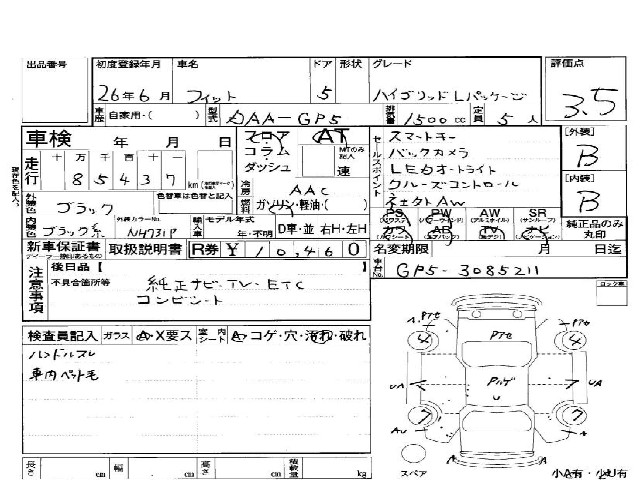 出品番号 初度登録年月 車名 ドア 形状 グレード 評価点
26年6月 フィット 5 ハイブリッド Lパッケージ 3.5
車歴 自家用・( ) 型式 DAA-GP5 排気量 1500cc 定員 5人
車検 年 月 日 フロア AT
コラム MTのみ記入
ダッシュ 速
走行 十 万 千 百 十
85437 km
冷房 AAC
燃料 ガソリン・軽油・( )
セールスポイント
スマートキー
バックカメラ
LEDオートライト
クルーズコントロール
ネェクトAW
[外装]
B
[内装]
B
外装色 ブラック 色替車は色替と記入
内装色 ブラック系 外装カラーNo. NH731P
輸入車 モデル年式 年・不明 D車・並 右H・左H
PS PW AW SR
カワ AB TV ナビ
純正品のみ丸印
新車保証書 取扱説明書 R券 ¥10,460
名変期限 月 日迄
注意事項 後日品【
不具合箇所等
純正ナビ・TV・ETC
コンビシート
車台No. GP5-3085211
ロック車
検査員記入 ガラス A・X要ス 室内シート A・コゲ・穴・汚れ・破れ
ハンドルスレ
車内ペット毛
A PTセ PTセ PTセ
4 4
UA Pルーゲ U UA
7 7
AU A
スペア 小A有・小U有
長さ cm 幅 cm 高さ cm 積載量 kg
現存色を記入。